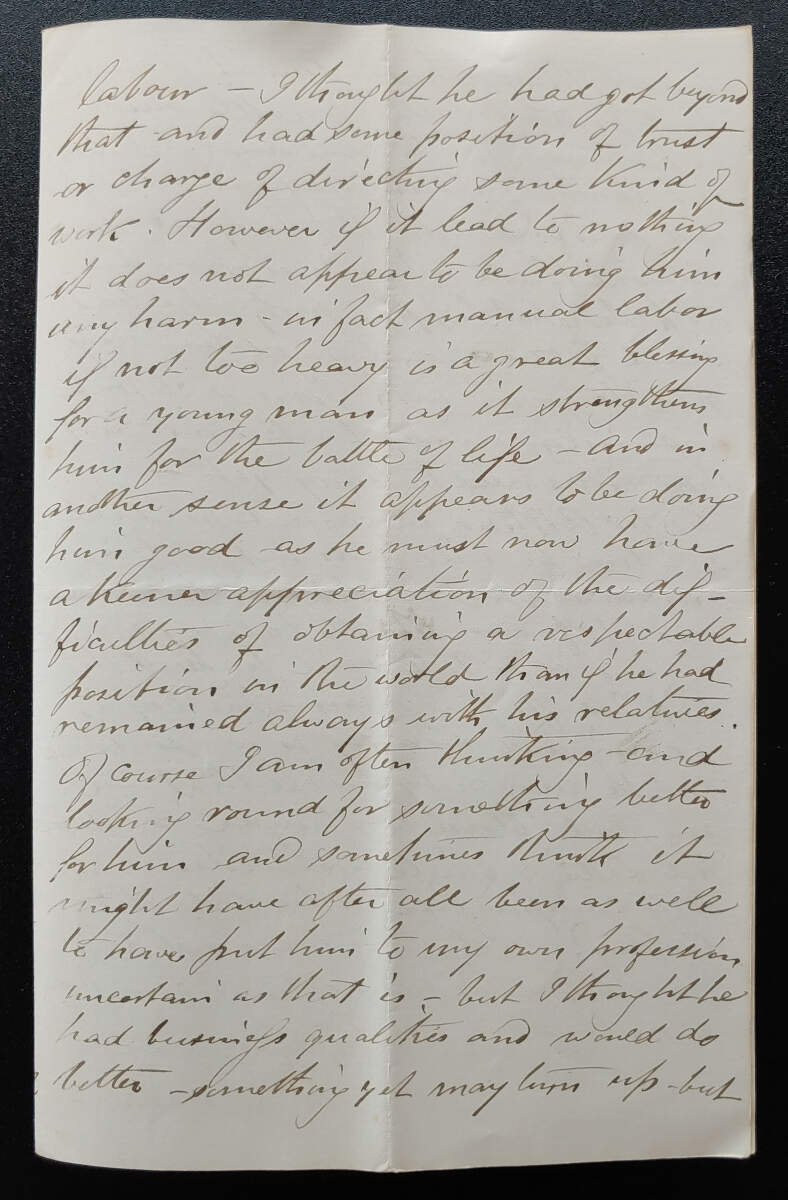 labour – I thought he had got beyond
that and had some position of trust
or charge of directing some kind of
work. However if it lead to nothing
it does not appear to be doing him
any harm – in fact manual labor
if not too heavy is a great blessing
for a young man as it strengthens
him for the battle of life – and in
another sense it appears to be doing
him good as he must now have
a keener appreciation of the dif–
ficulties of obtaining a respectable
position in the world than if he had
remained always with his relatives.
Of course I am often thinking and
looking round for something better
for him and sometimes think it
might have after all been as well
to have put him to my own profession
uncertain as that is – but I thought he
had business qualities and would do
better – something yet may turn up – but